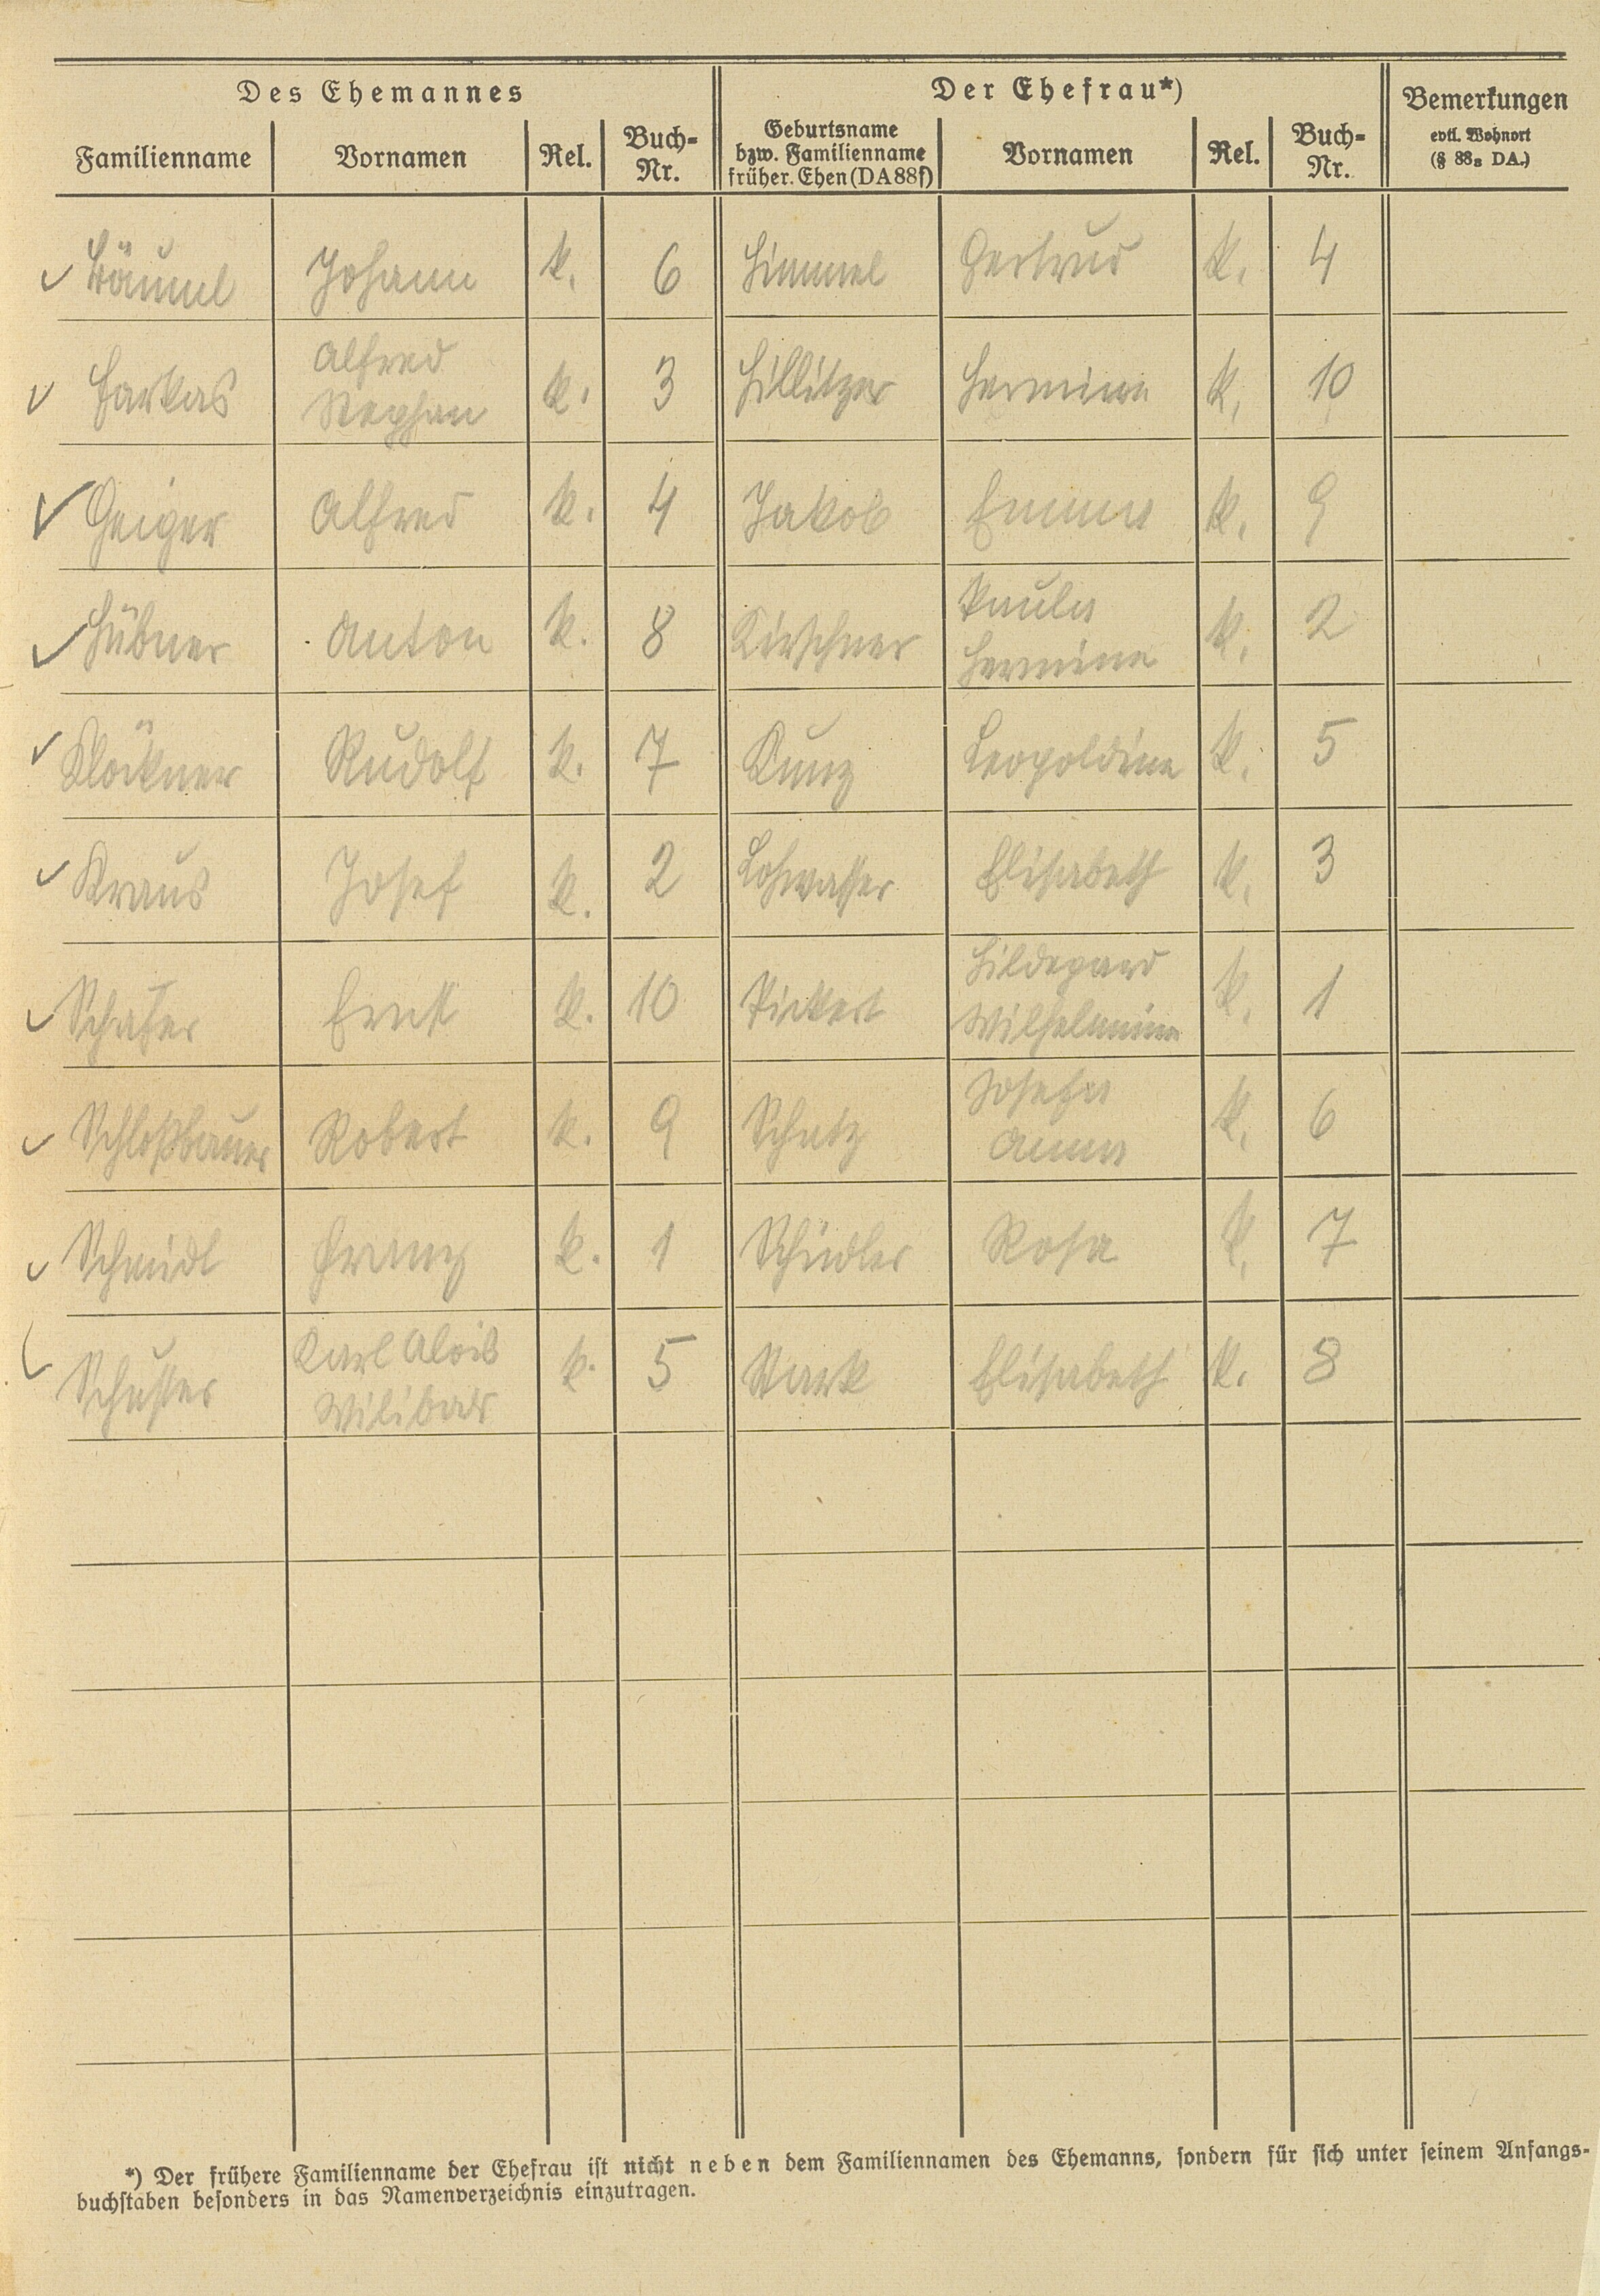 Des Ehemannes Der Ehefrau*) Bemerkungen
evtl. Wohnort
(§ 88g DA.)
Familienname Vornamen Rel. Buch-Nr. Geburtsname bzw. Familienname früher. Ehen (DA 88f) Vornamen Rel. Buch-Nr.
Bäuml Johann k. 6 Himmel Gertrud k. 4
Farkas Alfred Stephan k. 3 Hillitzer Hermine k. 10
Geiger Alfred k. 4 Jakob Emma k. 9
Hübner Anton k. 8 Kirschner Paula Hermine k. 2
Klöckner Rudolf k. 7 Kunz Leopoldine k. 5
Kraus Josef k. 2 Lohwasser Elisabeth k. 3
Schafer Ernst k. 10 Pickert Hildegard Wilhelmine k. 1
Schloßbauer Robert k. 9 Schatz Josefa Anna k. 6
Schmidl Franz k. 1 Schindler Rosa k. 7
Schuster Karl Alois Wilibald k. 5 Stark Elisabeth k. 8
*) Der frühere Familienname der Ehefrau ist nicht neben dem Familiennamen des Ehemanns, sondern für sich unter seinem Anfangs-
buchstaben besonders in das Namenverzeichnis einzutragen.